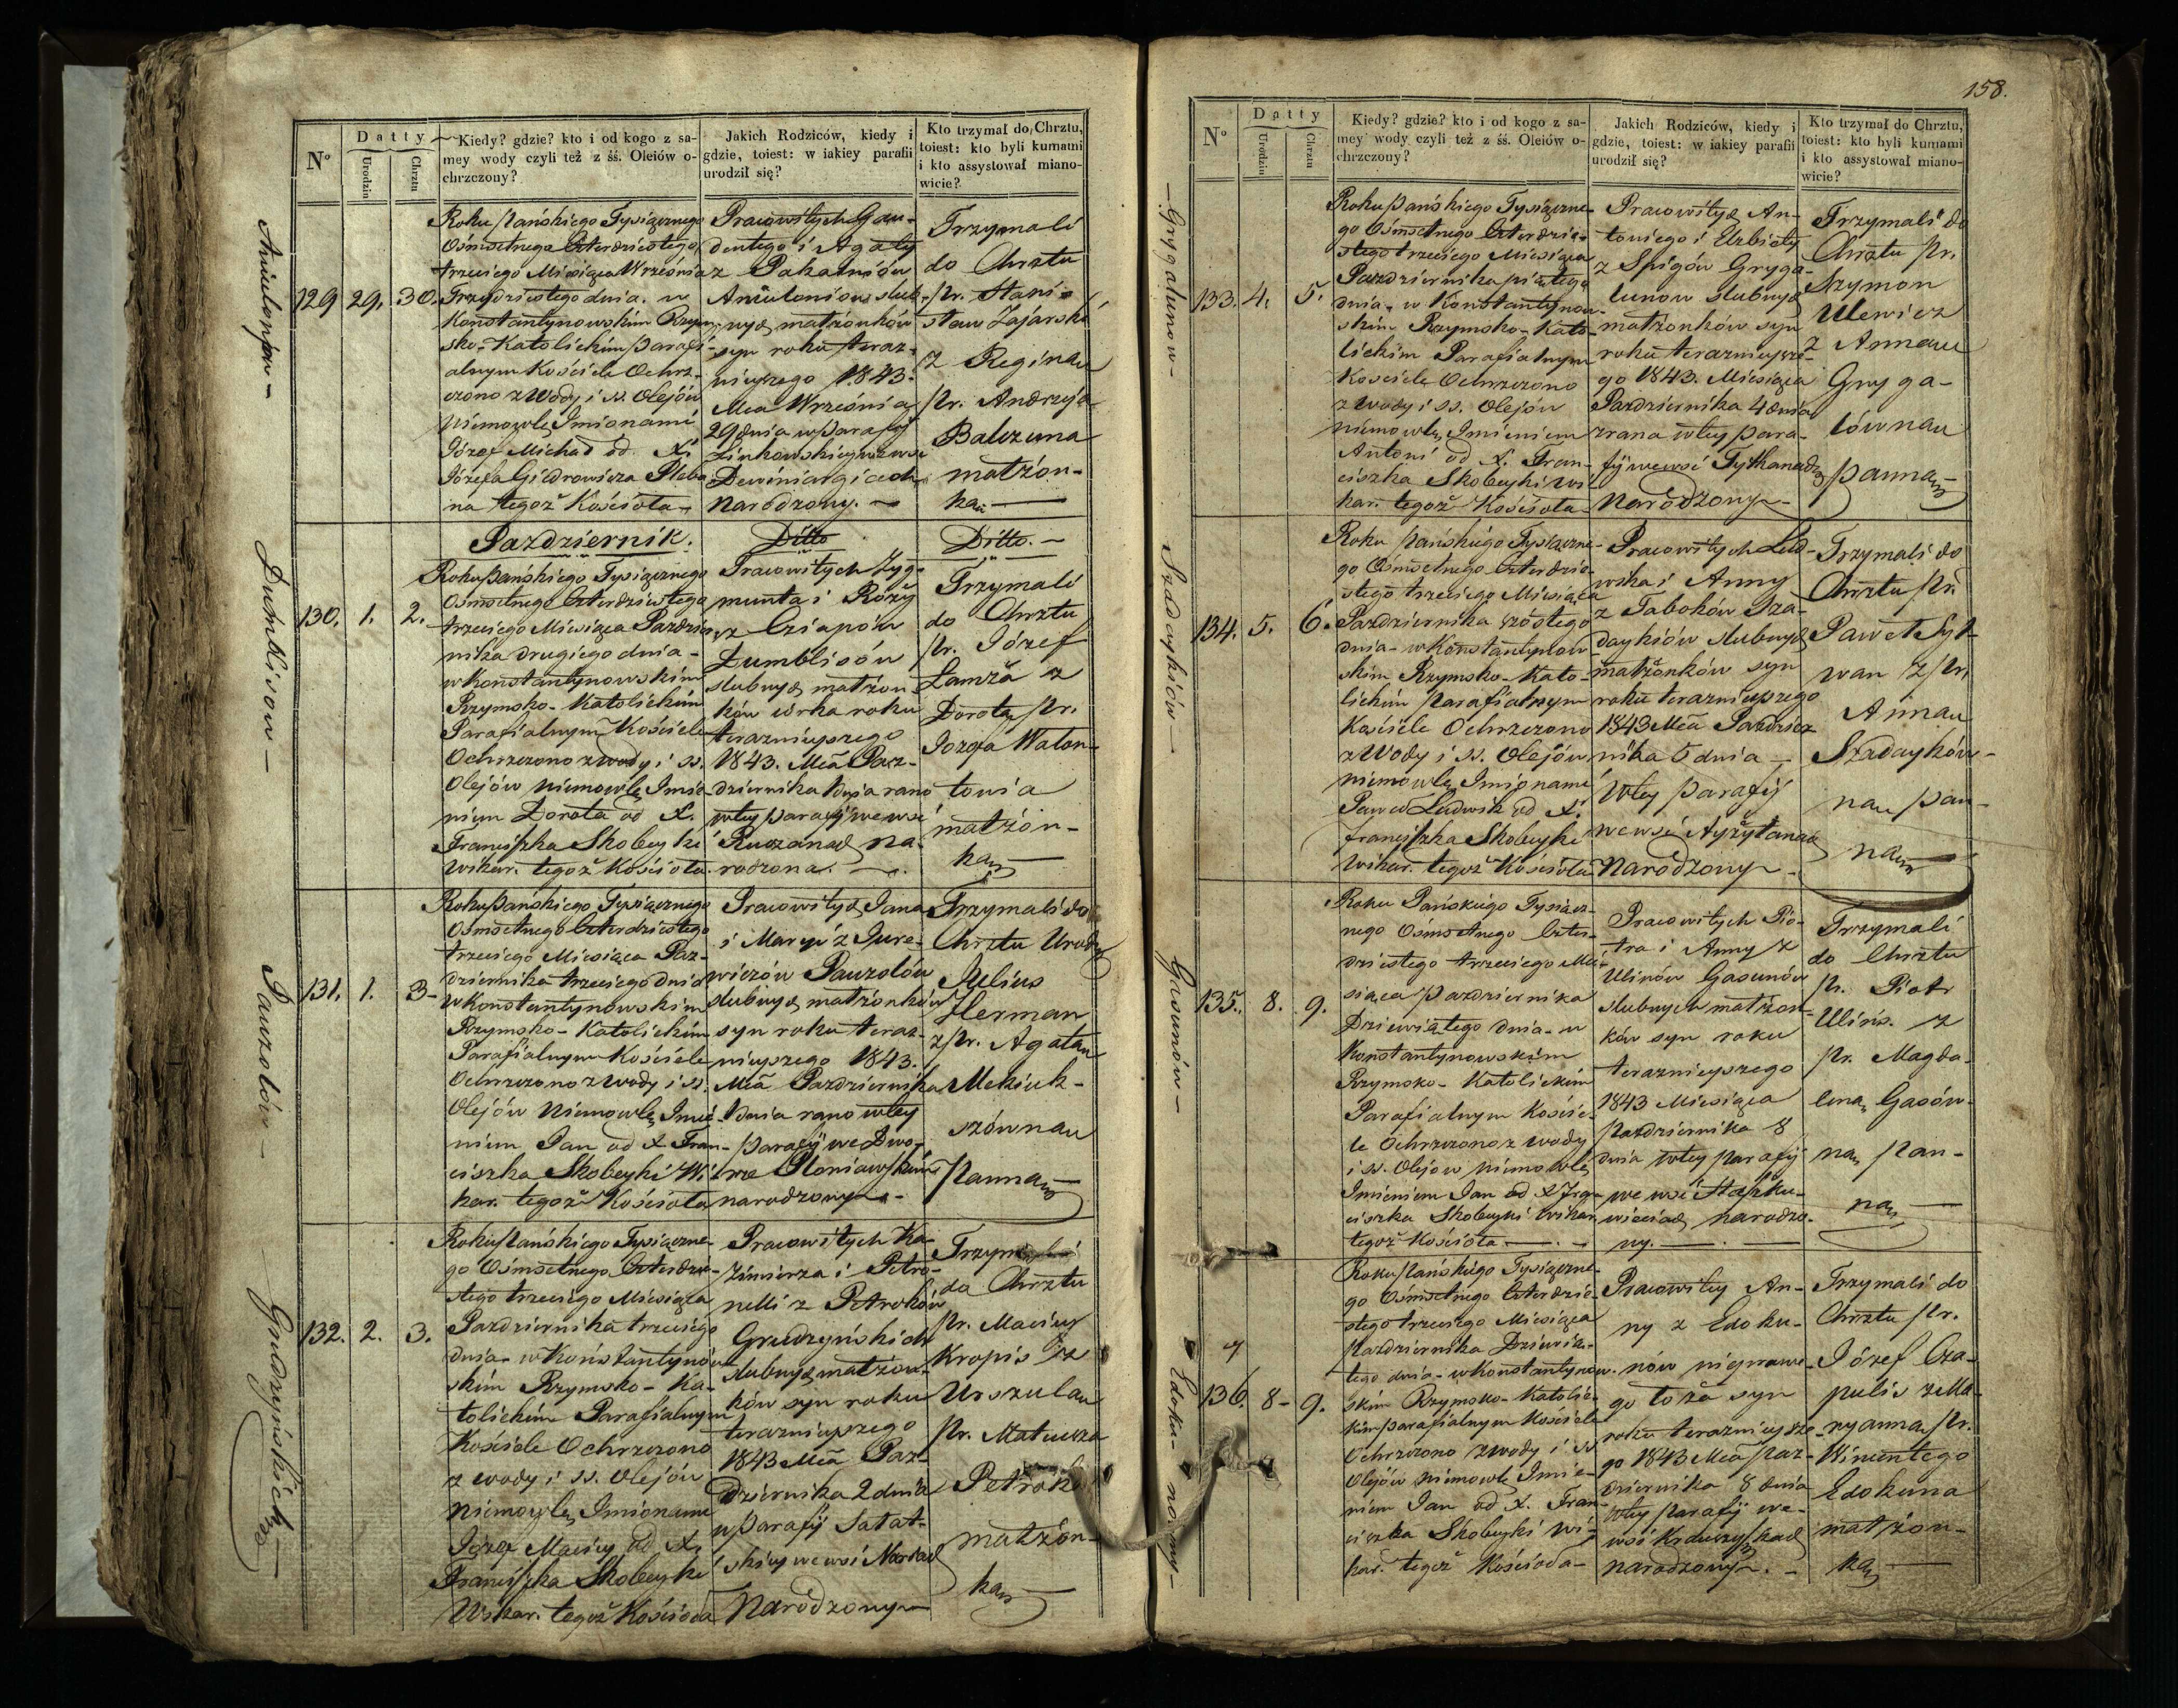 N°
Datty
Urodzin
Chrztu
Kiedy? gdzie? kto i od kogo z sa-
mey wody czyli też z śś. Oleiów o-
chrzczony?
Jakich Rodziców, kiedy i
gdzie, toiest: w iakiey parafii
urodził się?
Kto trzymał do Chrztu,
toiest: kto byli kumami
i kto assystował miano-
wicie?
129
29.
30.
Roku Pańskiego Tysiącznego
Ośmsetnego Czterdziestego
trzeciego Miesiąca Września
Trzydziestego dnia. w
Konstantynowskim Rzym-
sko-Katolickim Parafi-
alnym Kościele Ochrz-
czono z Wody i SS. Olejów
Niemowlę Imionami
Józef Michał od X.
Józefa Giedrowicza Pleba-
na tegoż Kościoła
Pracowitych Gau-
dentego i Agaty
z
slub-
nych małżonków
syn roku teraz-
nieyszego 1843.
Mca Września
29 dnia w Parafij
we wsi
Narodzony.
Trzymali
do Chrztu
Pr. Stani-
sław Zajarski
z Reginau
Pr. Andrzeja
Balczuna
małżon-
kau
Pazdziernik.
Ditto
Ditto.
130.
1.
2.
Roku Pańskiego Tysiącznego
Ośmsetnego Czterdziestego
trzeciego Miesiąca Pazdzier-
nika drugiego dnia
w Konstantynowskim
Rzymsko-Katolickim
Parafialnym Kościele
Ochrzczono z wody i SS.
Olejów Niemowlę Imie-
niem Dorota od X.
Franciszka Skobeyki
Wikar. tegoż Kościoła
Pracowitych Zyg-
munta i Rózy
z Cziapów
Dumblisów
slubnych małżon-
ków córka roku
terazniejszego
1843. Mca Paz-
dziernika 1 dnia rano
w tey Parafij we wsi
na-
rodzona.
Trzymali
do Chrztu
Pr. Józef
Lamża z
Dorotą Pr.
Jozefa Walon-
towia
małżon-
kau
131.
1.
3
Roku Pańskiego Tysiącznego
Ośmsetnego Czterdziestego
trzeciego Miesiąca Paz-
dziernika trzeciego dnia
w Konstantynowskim
Rzymsko-Katolickim
Parafialnym Kościele
Ochrzczono z Wody i SS.
Olejów Niemowlę Imie-
niem Jan od X Fran-
ciszka Skobeyki Wi-
kar. tegoż Kościoła
Pracowitych Jana
i Maryi z Jure-
wiczów Pauzolów
slubnych małżonków
syn roku teraz-
nieyszego 1843.
Mca Pazdziernika
1 dnia rano w tey
Parafij we Dwo-
rze
narodzony
Trzymali do
Chrztu Urodz.
Julius
Herman
z Pr. Agatau
Mekiuk-
szównau
Pannau
132.
2.
3.
Roku Pańskiego Tysiączne-
go Ośmsetnego Czterdzie-
stego trzeciego Miesiąca
Pazdziernika trzeciego
dnia w Konstantynow-
skim Rzymsko-Ka-
tolickim Parafialnym
Kościele Ochrzczono
z wody i SS. Olejów
Niemowlę Imionami
Józef Maciey od X.
Franciszka Skobeyki
Wikar. tegoż Kościoła
Pracowitych Ka-
zimierza i Petro-
nelli z Petroków
Grudzyńskich
slubnych małżon-
ków syn roku
terazniejszego
1843 Mca Paz-
dziernika 2 dnia
w Parafij Satat-
skiey we wsi
Narodzony
Trzymali
do Chrztu
Pr. Maciey
Kropis z
Urszulau
Pr. Mateusza
Petroka
małżon-
kau
Dumblisów
Pauzolów
Grudzyńskich
158.
N°
Datty
Urodzin
Chrztu
Kiedy? gdzie? kto i od kogo z sa-
mey wody czyli też z śś. Oleiów o-
chrzczony?
Jakich Rodziców, kiedy i
gdzie, toiest: w iakiey parafii
urodził się?
Kto trzymał do Chrztu,
toiest: kto byli kumami
i kto assystował miano-
wicie?
133.
4.
5.
Roku Pańskiego Tysiączne-
go Ośmsetnego Czterdzie-
stego trzeciego Miesiąca
Pazdziernika piątego
dnia w Konstantynow-
skim Rzymsko-Kato-
lickim Parafialnym
Kościele Ochrzczono
z wody i SS. Olejów
niemowlę Imieniem
Antoni od X. Fran-
ciszka Skobeyki Wi-
kar. tegoż Kościoła
Pracowitych An-
toniego i Elzbiety
z Spigów Gryga-
lunow slubnych
małżonków syn
roku terazniejsze-
go 1843. Miesiąca
Pazdziernika 4 dnia
zrana w tey para-
fij we wsi
Narodzony
Trzymali do
Chrztu Pr.
Szymon
Ulewicz
z Annau
Gryga-
lównau
pannau
134.
5.
6.
Roku Pańskiego Tysiączne-
go Ośmsetnego Czterdzie-
stego trzeciego Miesiąca
Pazdziernika szóstego
dnia w Konstantynow-
skim Rzymsko-Kato-
lickim Parafialnym
Kościele Ochrzczono
z Wody i SS. Olejów
niemowlę Imionami
Paweł Ludwik od X.
Franciszka Skobeyki
Wikar. tegoż Kościoła
Pracowitych Lud-
wika i Anny
z Tabokow Sza-
daykiów slubnych
małżonków syn
roku terazniejszego
1843 Mca Pazdzier-
nika 5 dnia
w tey Parafij
we wsi
Narodzony
Trzymali do
Chrztu Pr.
Paweł Syt-
wan z Pr.
Annau
Szadayków-
nau pan-
nau
135.
8.
9.
Roku Pańskiego Tysiącz-
nego Ośmsetnego Czter-
dziestego trzeciego Mie-
siąca Pazdziernika
Dziewiątego dnia w
Konstantynowskim
Rzymsko-Katolickim
Parafialnym Koście-
le Ochrzczono z wody
i SS. Olejow niemowlę
Imieniem Jan od X Fran-
ciszka Skobeyki Wikar.
tegoż Kościoła
Pracowitych Pio-
tra i Anny z
Ulinów Gasunów
slubnych małżon-
ków syn roku
terazniejszego
1843 Miesiąca
Pazdziernika 8
dnia w tey parafij
we wsi
narodzo-
ny.
Trzymali
do Chrztu
Pr. Piotr
Ulins. z
Pr. Magda-
leną Gasów-
ną Pan-
ną
136.
8
9.
Roku Pańskiego Tysiączne-
go Ośmsetnego Czterdzie-
stego trzeciego Miesiąca
Pazdziernika Dziewią-
tego dnia w Konstantynow-
skim Rzymsko-Katolic-
kim parafialnym Kościele
Ochrzczono z wody i SS
Olejów niemowlę Imie-
niem Jan od X. Fran-
ciszka Skobeyki Wi-
kar. tegoż Kościoła
Pracowitey An-
ny z Edoku-
nów nieprawe-
go łoża syn
roku terazniejsze-
go 1843 Mca Paz-
dziernika 8 dnia
w tey parafij we
wsi
narodzony.
Trzymali do
Chrztu Pr.
Józef Cza-
pulis z Ma-
ryanną Pr.
Wincentego
Edokuna
małżon-
kau
Grygalunow
Szadaykiów
Gasunów